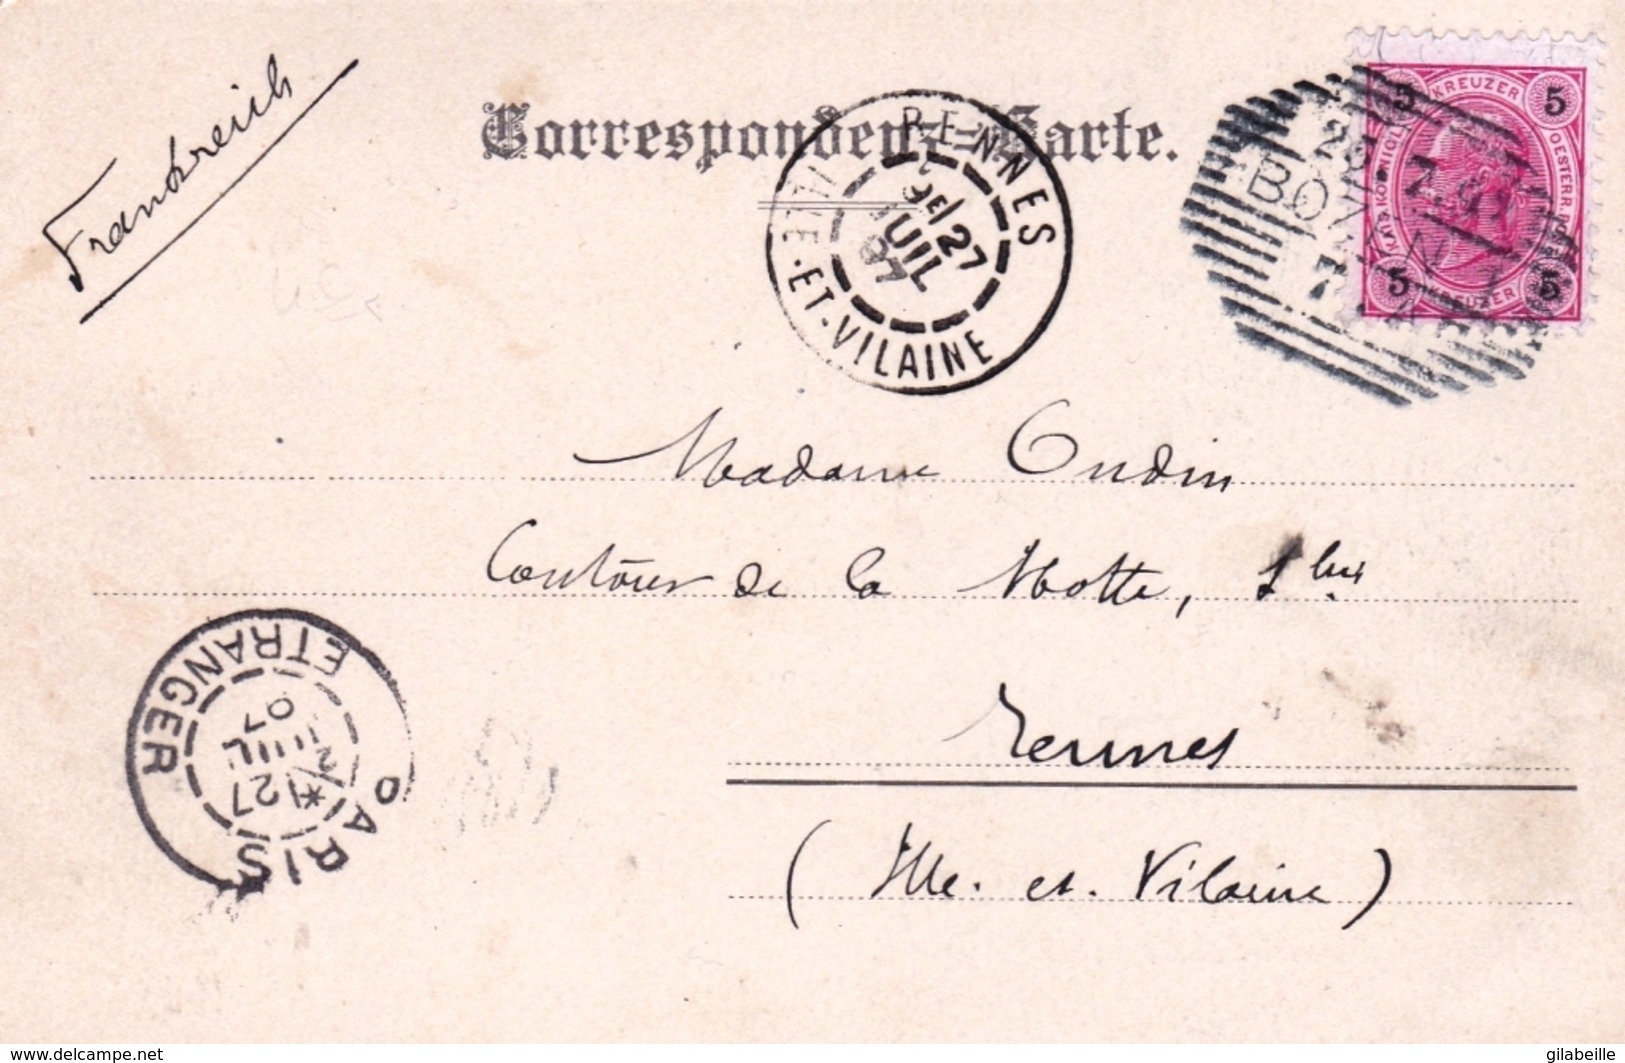 Frankreich
Correspondenz-Karte.
RENNES
27
JUIL
97
ILLE-ET-VILAINE
BOZEN 1
KREUZER
5 5
5 5
KREUZER
Madame Oudin
Contour de la Motte, 1 bis
Rennes
(Ille. et. Vilaine)
PARIS
27
JUIL
97
ETRANGER
www.delcampe.net
gilabeille